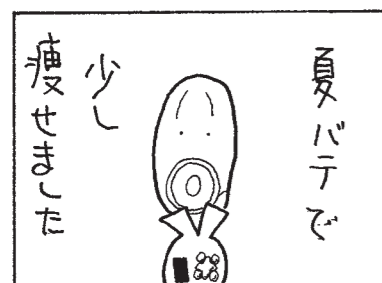 夏バテで
少し
痩せました